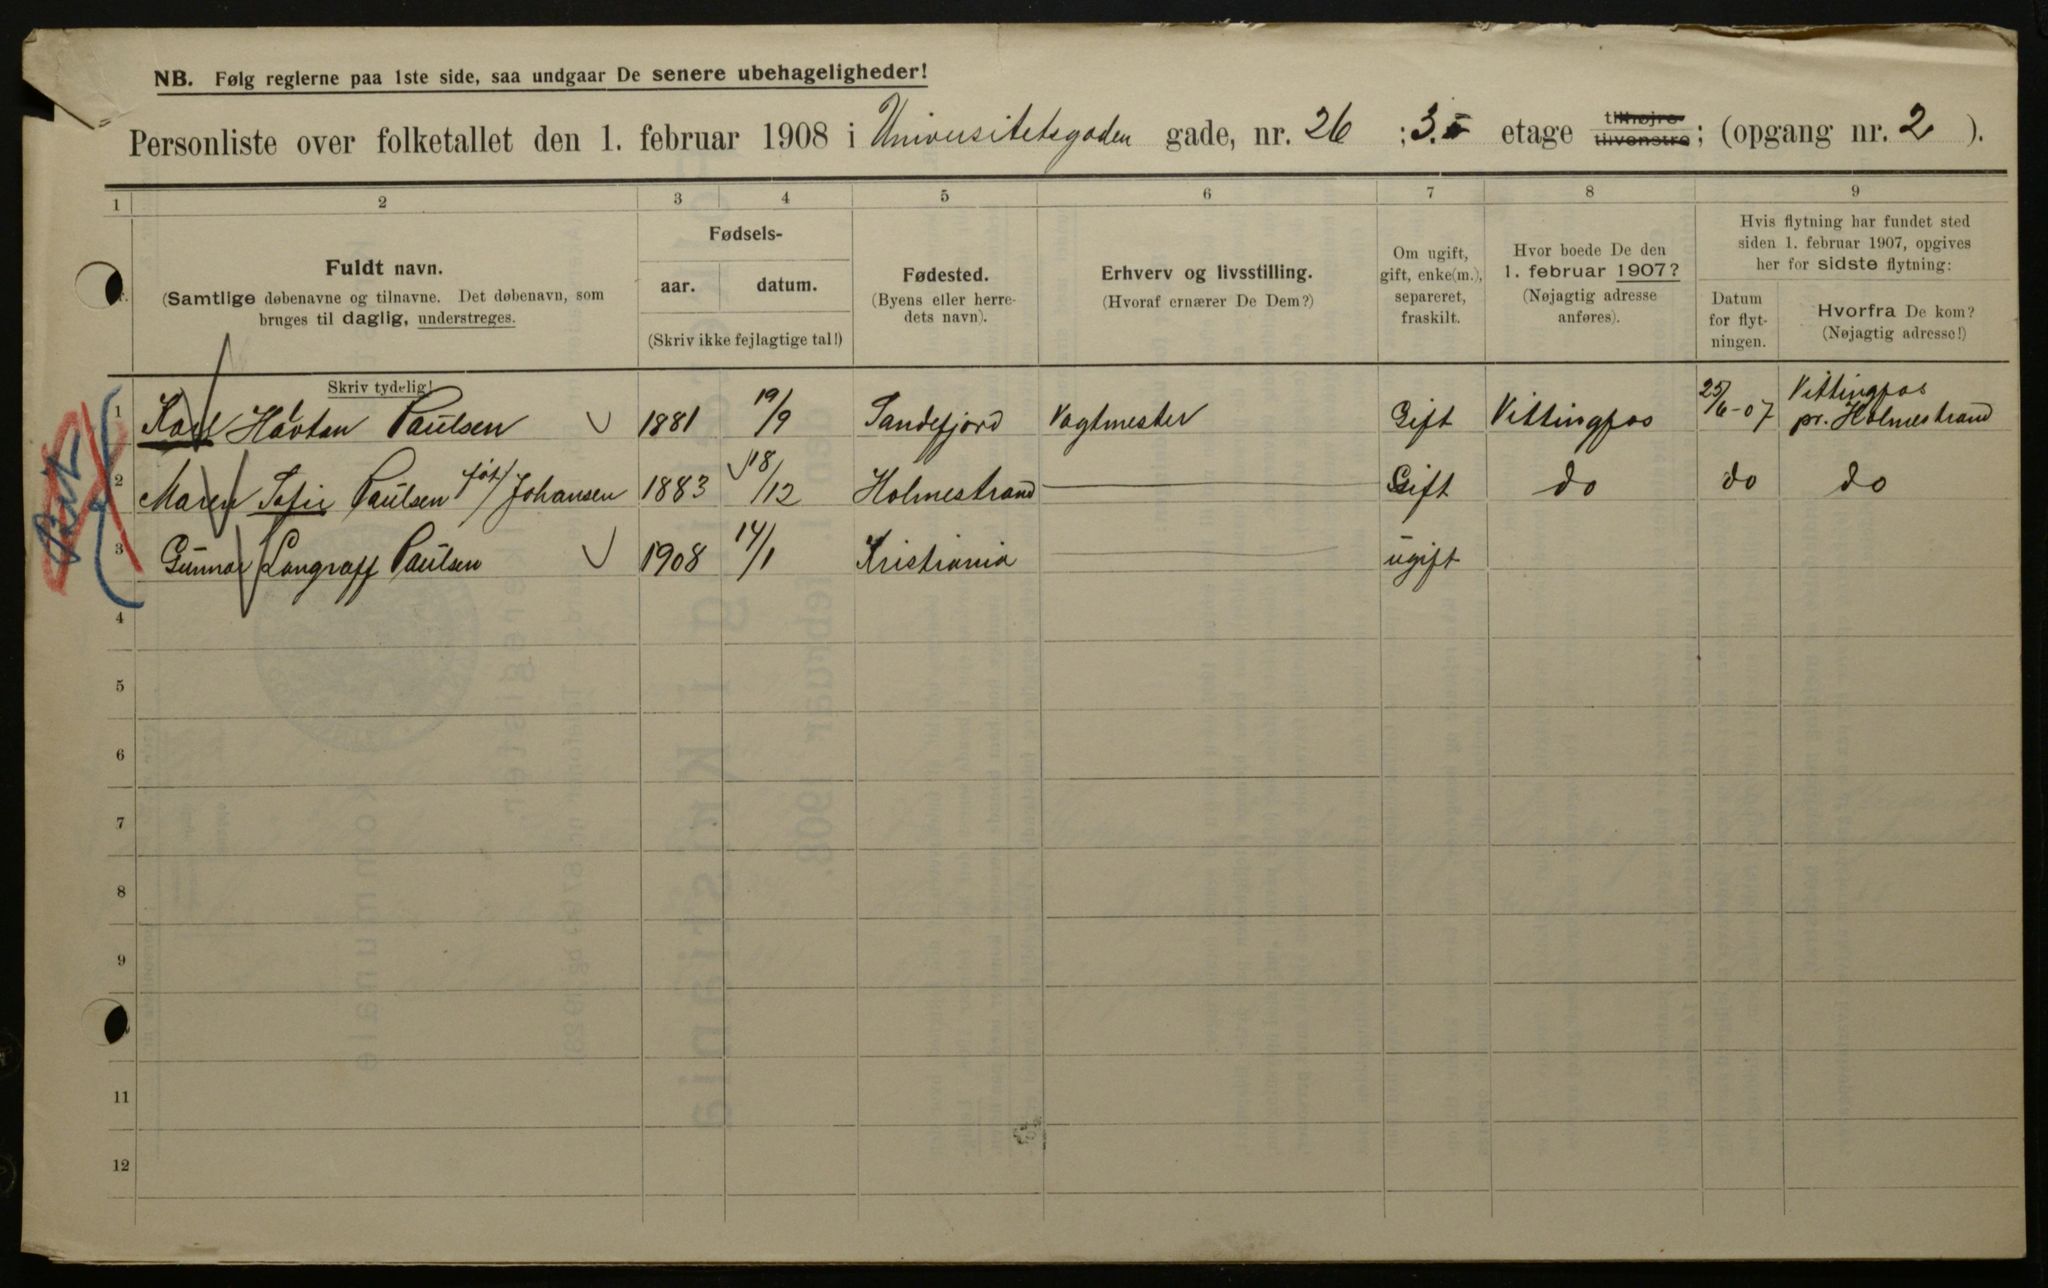 NB. Følg reglerne paa 1ste side, saa undgaar De senere ubehageligheder!
Personliste over folketallet den 1. februar 1908 i Universitetsgaden gade, nr. 26 ; 3. etage tilhøjre tilvenstre ; (opgang nr. 2 ).
1 2 3 4 5 6 7 8 9
Fuldt navn.
(Samtlige døbenavne og tilnavne. Det døbenavn, som
bruges til daglig, understreges.
Skriv tydelig!
Fødsels-
aar. datum.
(Skriv ikke fejlagtige tal!)
Fødested.
(Byens eller herre-
dets navn).
Erhverv og livsstilling.
(Hvoraf ernærer De Dem?)
Om ugift,
gift, enke(m.),
separeret,
fraskilt.
Hvor boede De den
1. februar 1907?
(Nøjagtig adresse
anføres).
Hvis flytning har fundet sted
siden 1. februar 1907, opgives
her for sidste flytning:
Datum
for flyt-
ningen.
Hvorfra De kom?
(Nøjagtig adresse!)
1 Karl Hovtan Paulsen 1881 19/9 Sandefjord Vagtmester Gift Vittingfos 25/6-07 Vittingfos
pr. Holmestrand
2 Maren Sofie Paulsen føt/Johansen 1883 18/12 Holmestrand Gift do do do
3 Gunnar Langraff Paulsen 1908 14/1 Kristiania ugift
4
5
6
7
8
9
11
12